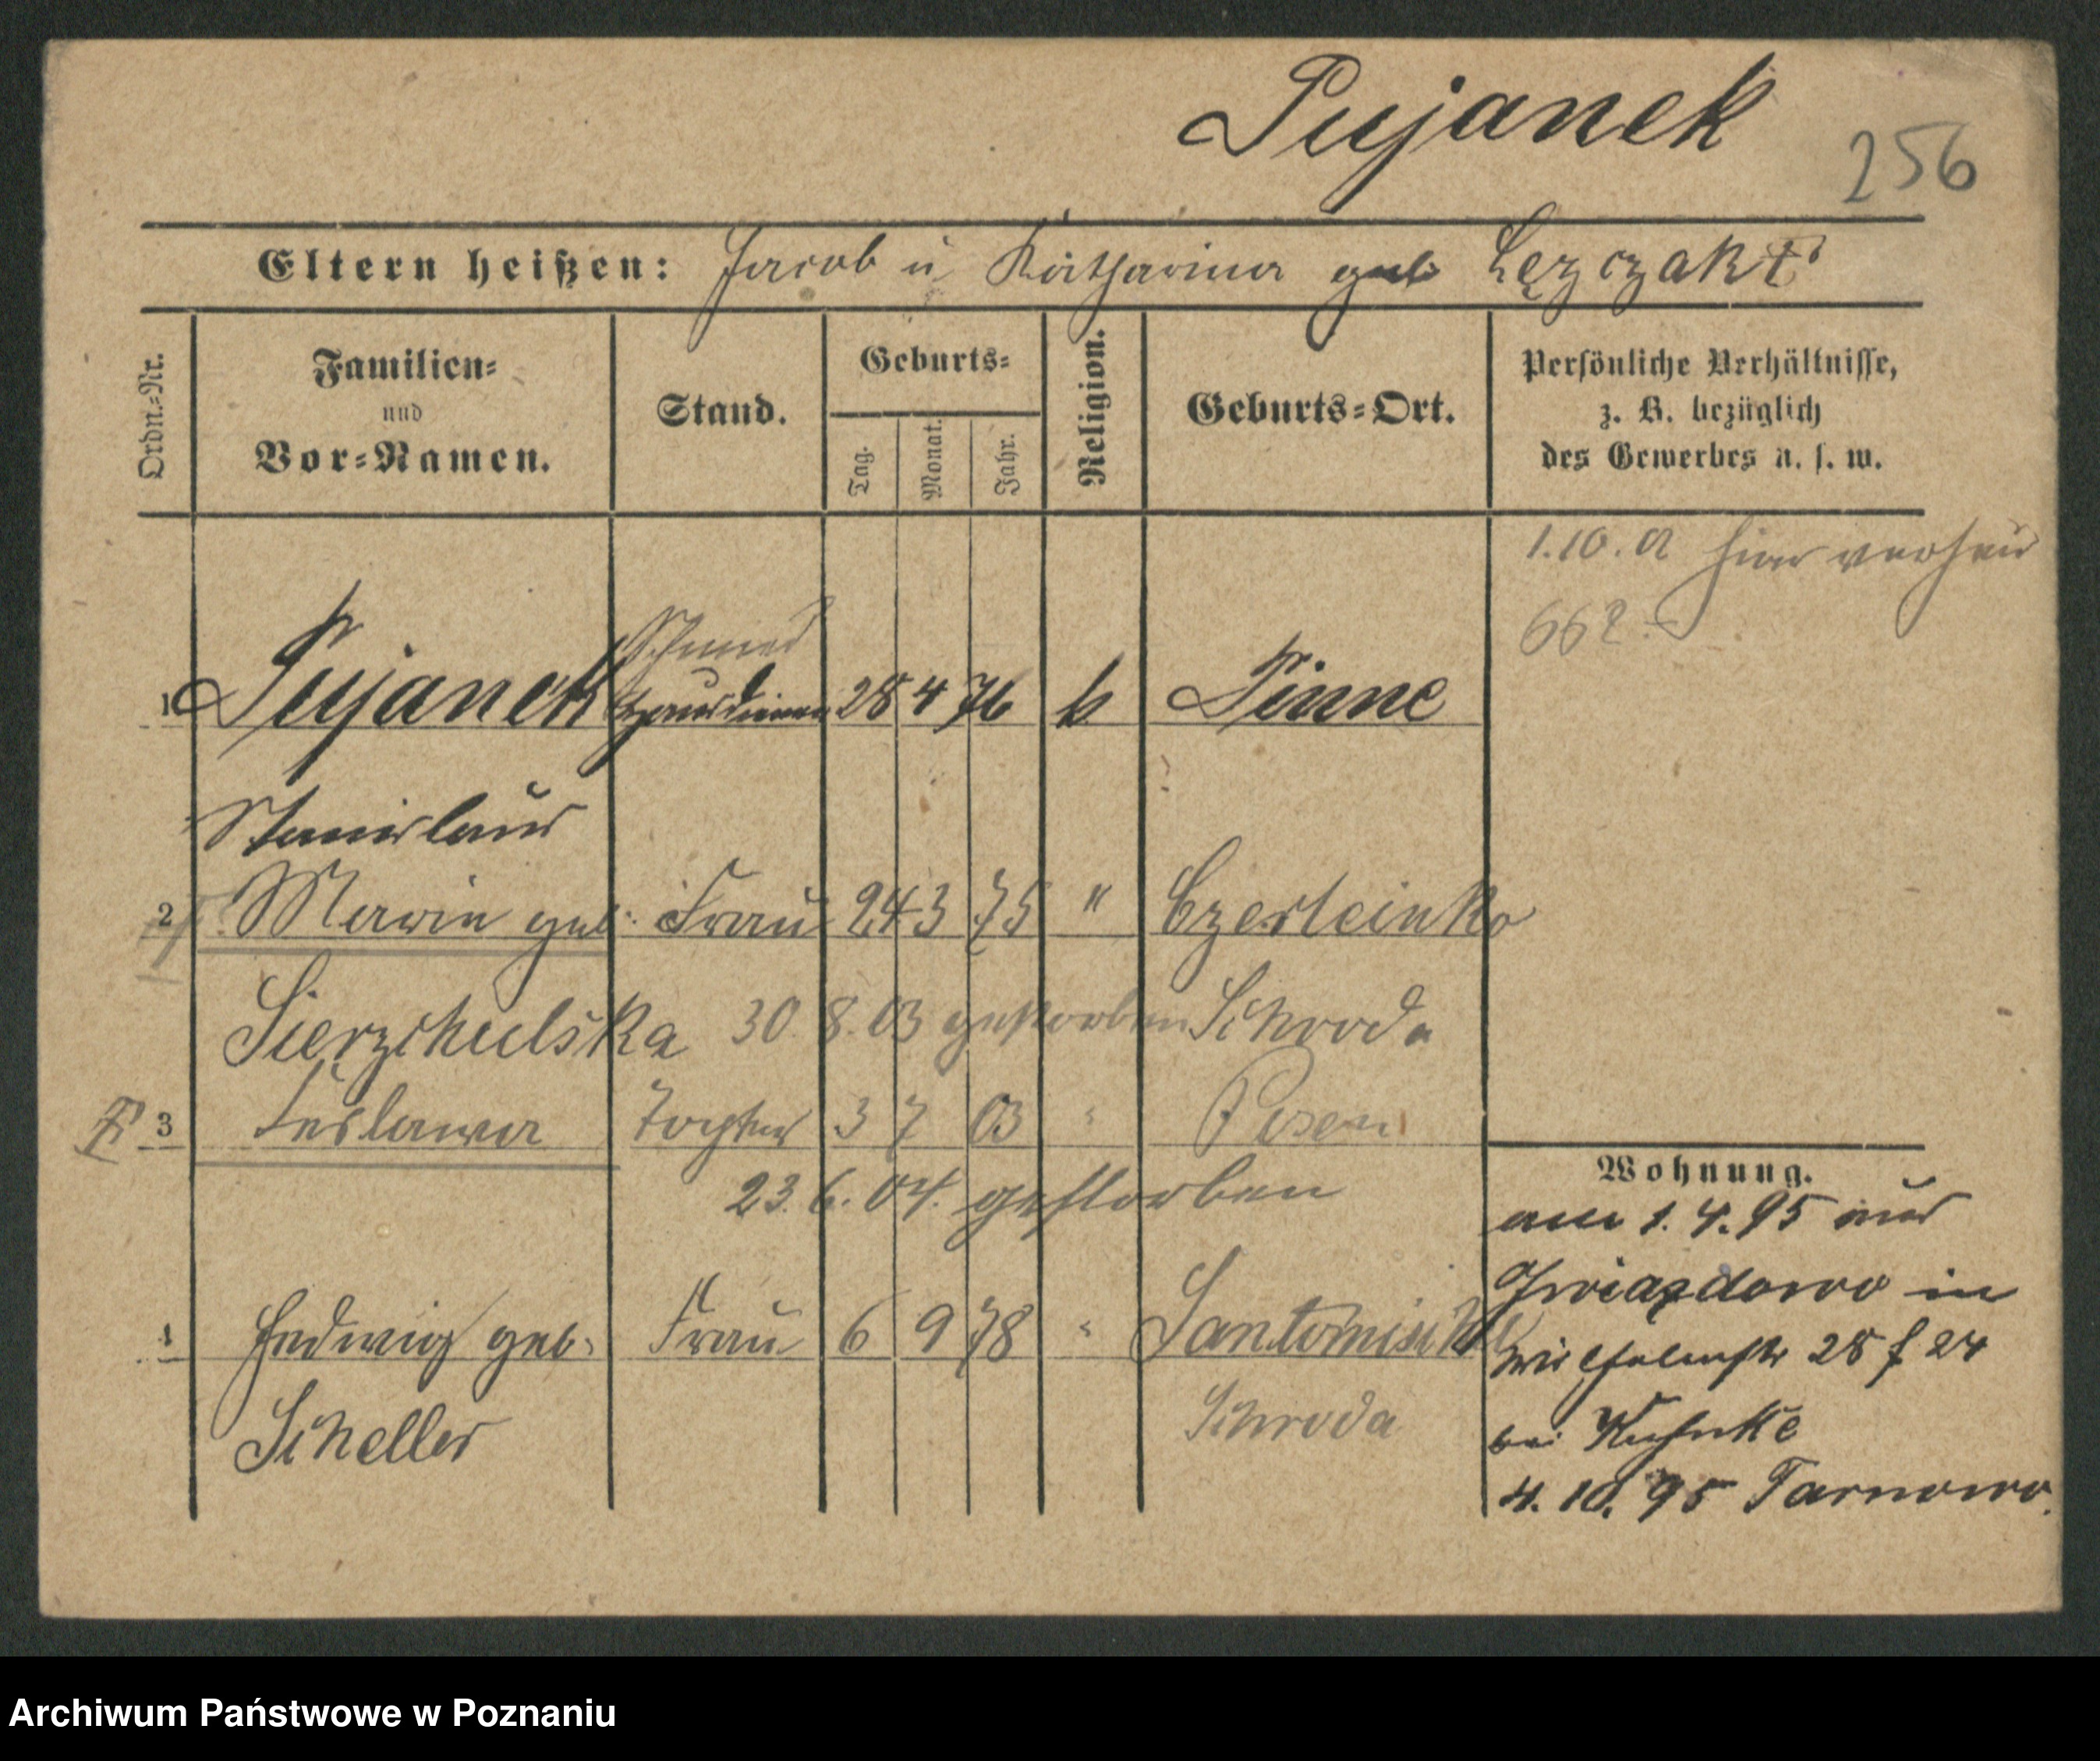 Pujanek
256
Eltern heißen: Jacob u Katharina geb Lęzczak
Ordn.-Nr.
Familien-
und
Vor-Namen.
Stand.
Geburts-
Tag.
Monat.
Jahr.
Religion.
Geburts-Ort.
Persönliche Verhältnisse,
z. B. bezüglich
des Gewerbes u. s. w.
1.10.01 hier verheir
662.
Schmied
1 Pujanek Hausdiener 28 4 76 k Pinne
Stanislaus
2 Maria geb. Frau 24 3 75 " Czerleinko
Sierzchulska 30.8.03 gestorben Schroda
3 Tochter 3 7 03 " Posen
23.6.04. gestorben
Wohnung.
am 1.4.95 aus
Gwiazdowo in
4 Hedwig geb. Frau 6 9 78 " Santomischel
Wilhelmstr 28 f 24
Scheller Schroda
bei
4.10.95 Tarnowo.
Archiwum Państwowe w Poznaniu